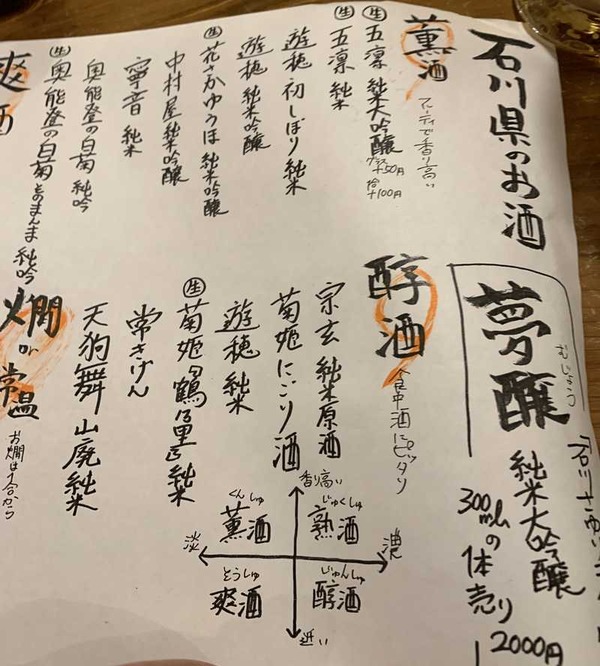 石川県のお酒
薫酒
フルーティで香り高い
生 五凛 純米大吟醸
グラス+50円
拾+100円
生 五凛 純米
遊穂 初しぼり 純米
遊穂 純米吟醸
生 花さかゆうほ 純米吟醸
中村屋 純米吟醸
寧音 純米
奥能登の白菊 純吟
生 奥能登の白菊 そのまんま 純吟
爽酒
夢醸
むじょう
純米大吟醸
300mlの体売り
2000円
醇酒
食中酒にピッタリ
宗玄 純米原酒
菊姫にごり酒
遊穂 純米
生 菊姫 鶴乃里 純米
常きげん
天狗舞 山廃 純米
燗or常温
お燗は1合から
香り高い
くんしゅ
薫酒
じゅくしゅ
熟酒
淡
濃
とうしゅ
爽酒
じゅんしゅ
醇酒